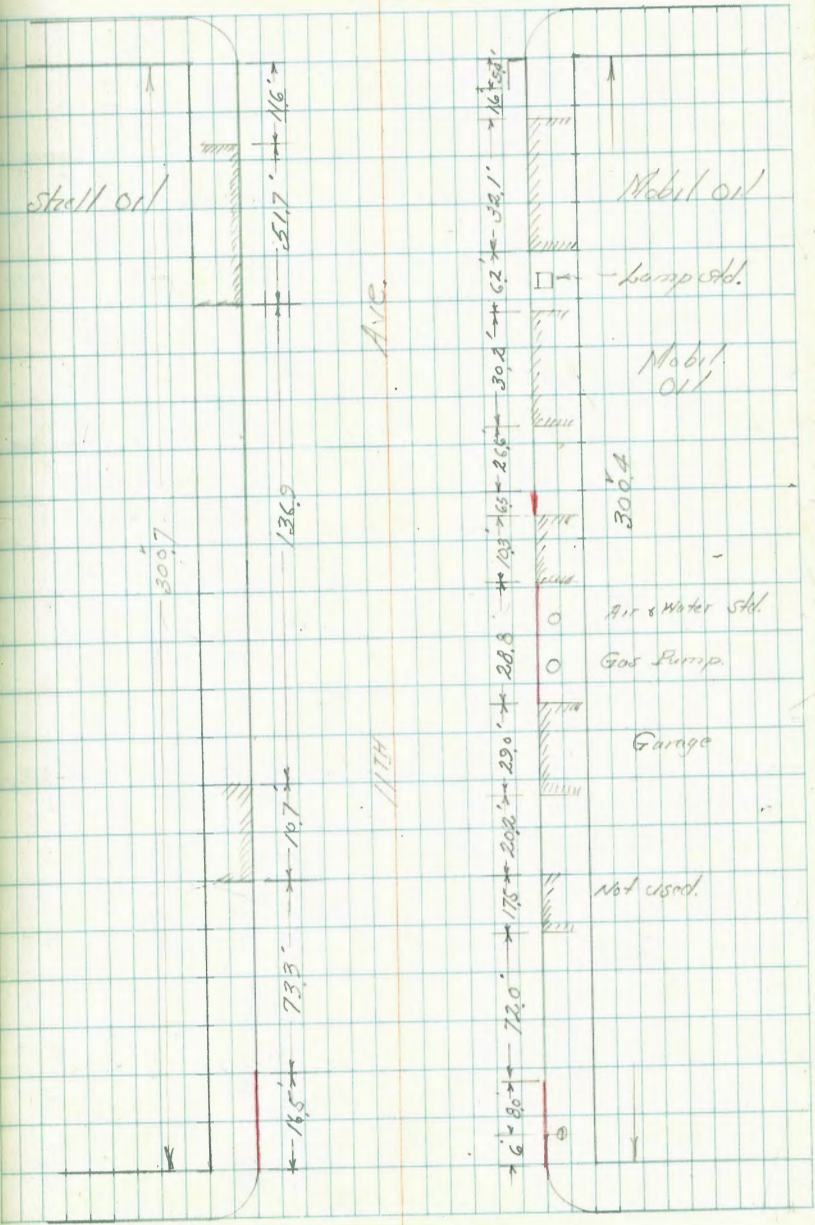 Shell Oil
11.6'
51.7'
136.9
300.7
10.7'
73.3'
16.5'
11TH
Ave.
5.0'
16'
32.1'
6.2'
30.2'
26.6'
6.5
10.3'
28.8'
29.0'
20.2'
17.5
72.0'
8.0'
6'
Mobil Oil
Lamp std.
Mobil
Oil
300.4
Air & Water Std.
Gas Pump.
Garage
Not used.